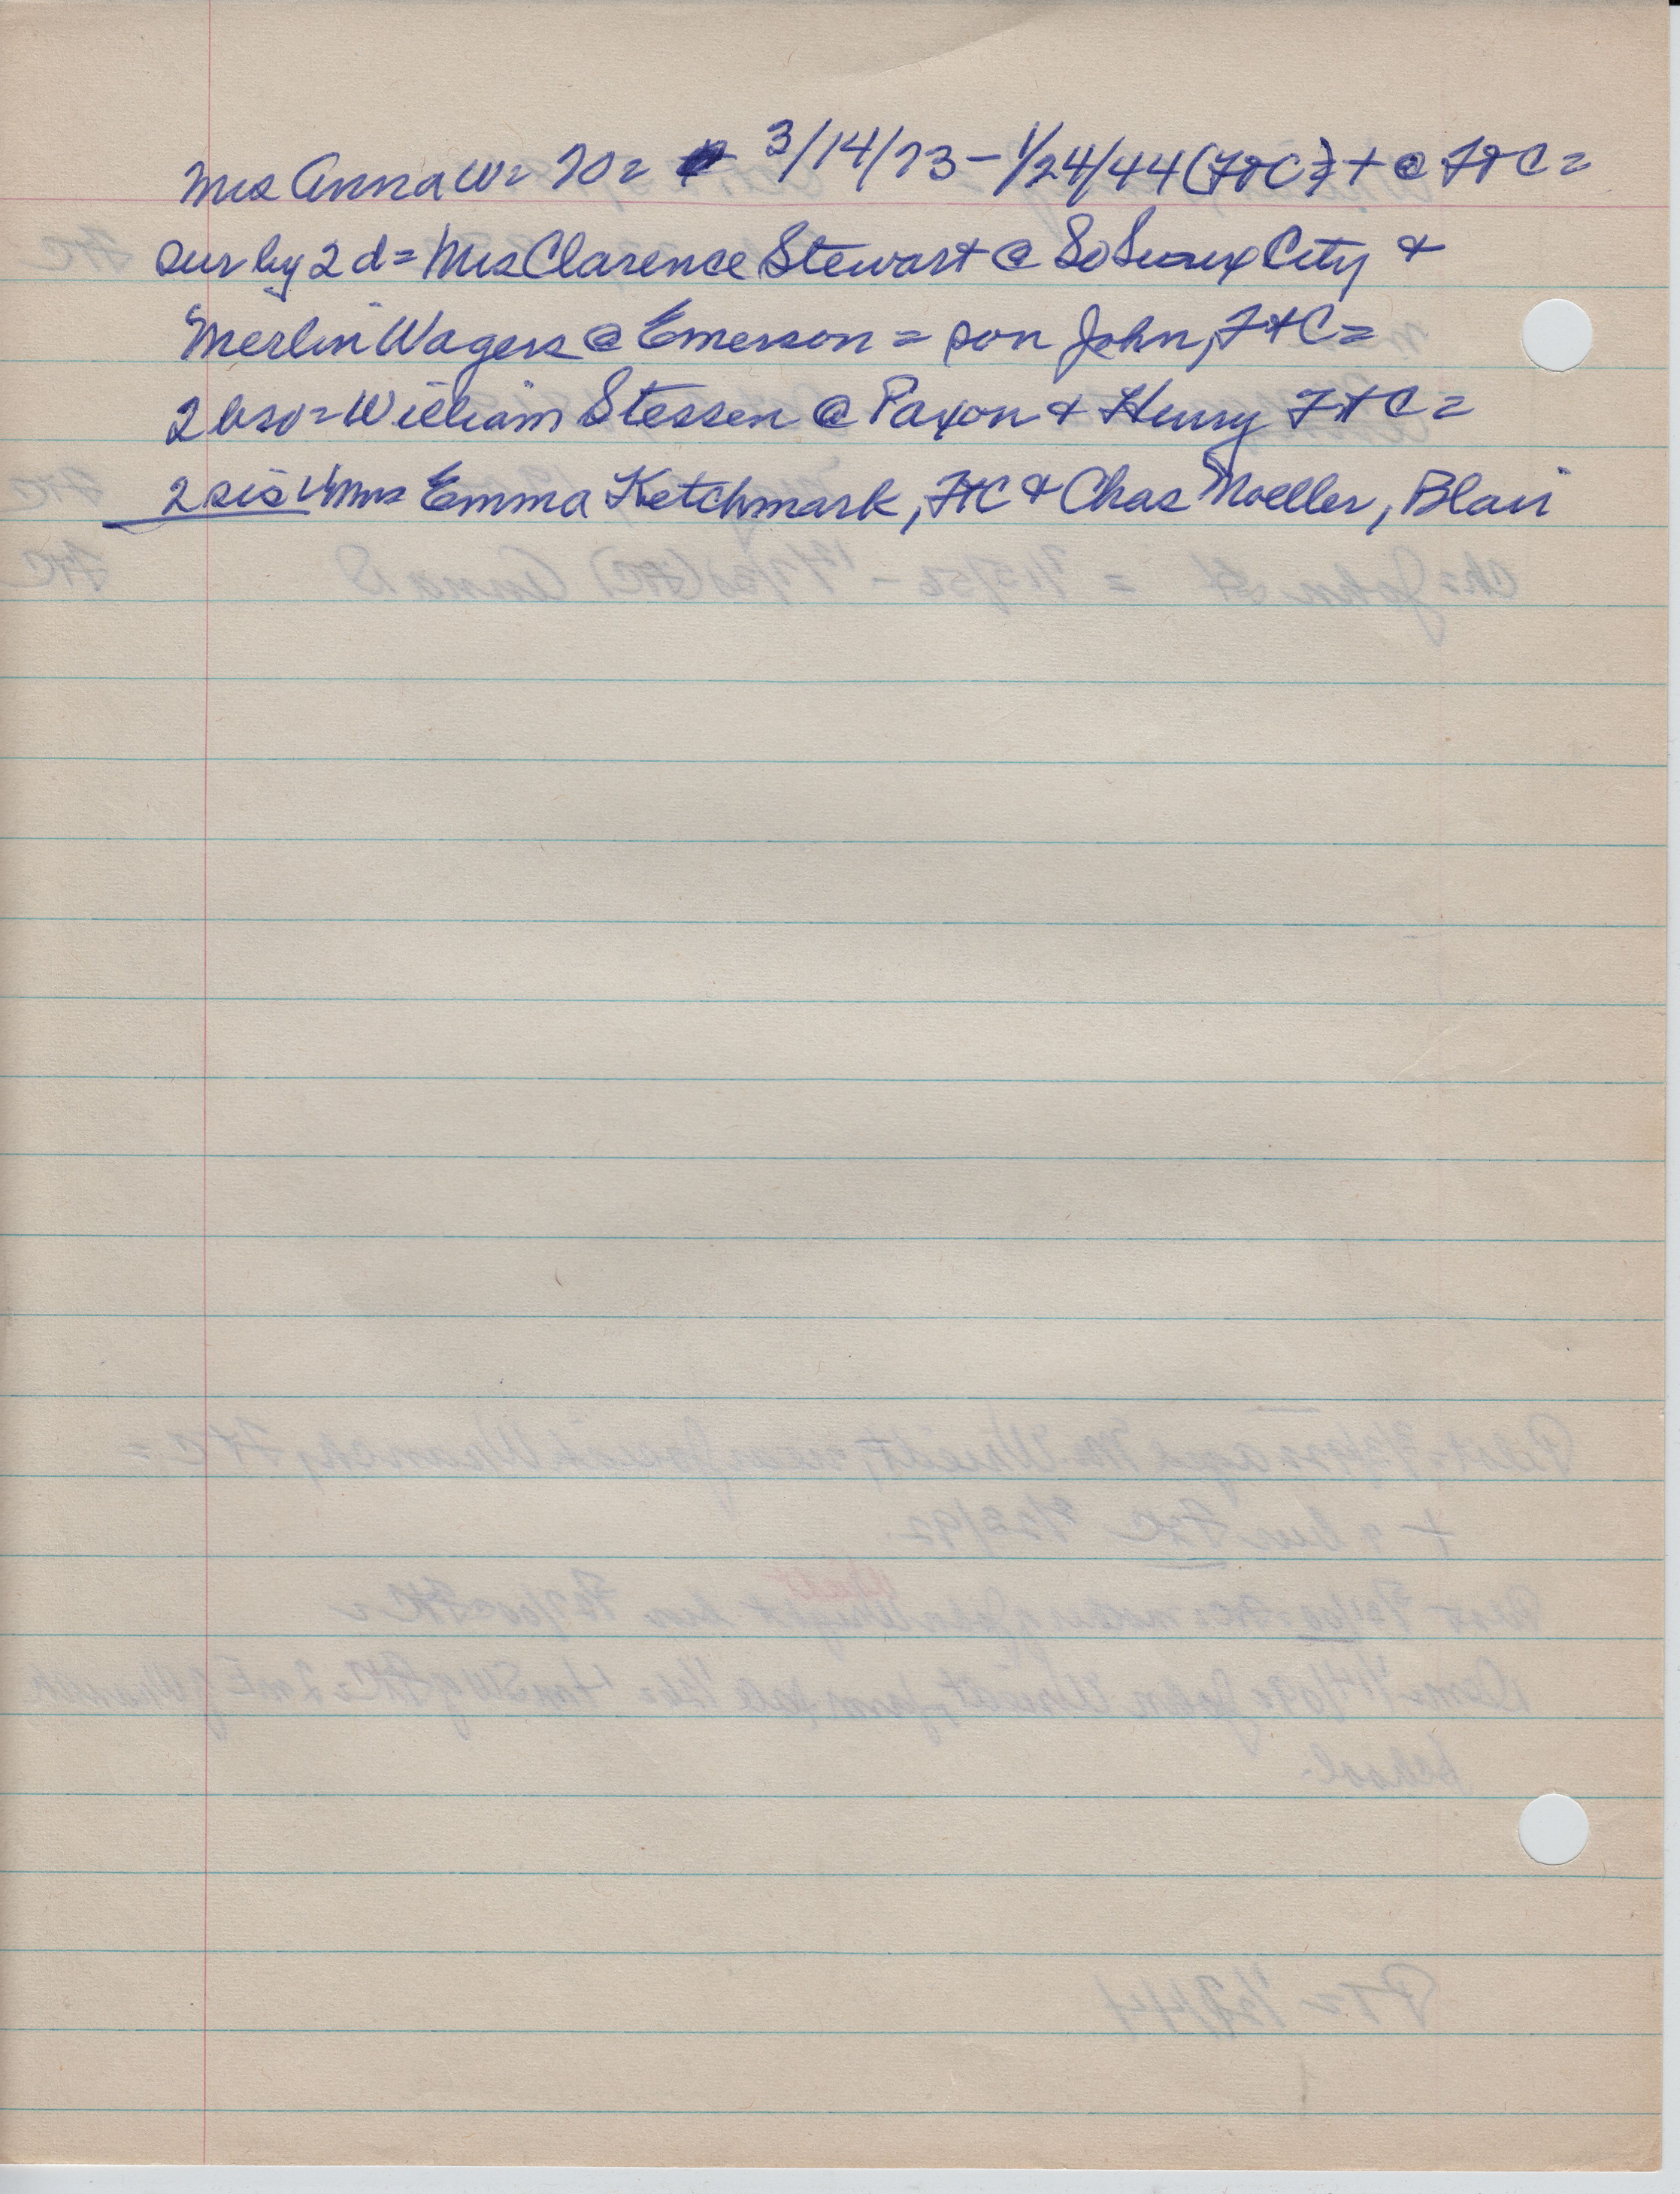 Mrs Anna W= 70= 3/14/73-1/24/44 (FtC) + @ FtC=
sur by 2 d= Mrs Clarence Stewart @ So Sioux City &
Merlin Wagers @ Emerson = son John, FtC=
2 bro= William Stessen @ Paxon & Henry FtC=
2 sis Mrs Emma Ketchmark, FtC & Chas Moeller, Blair